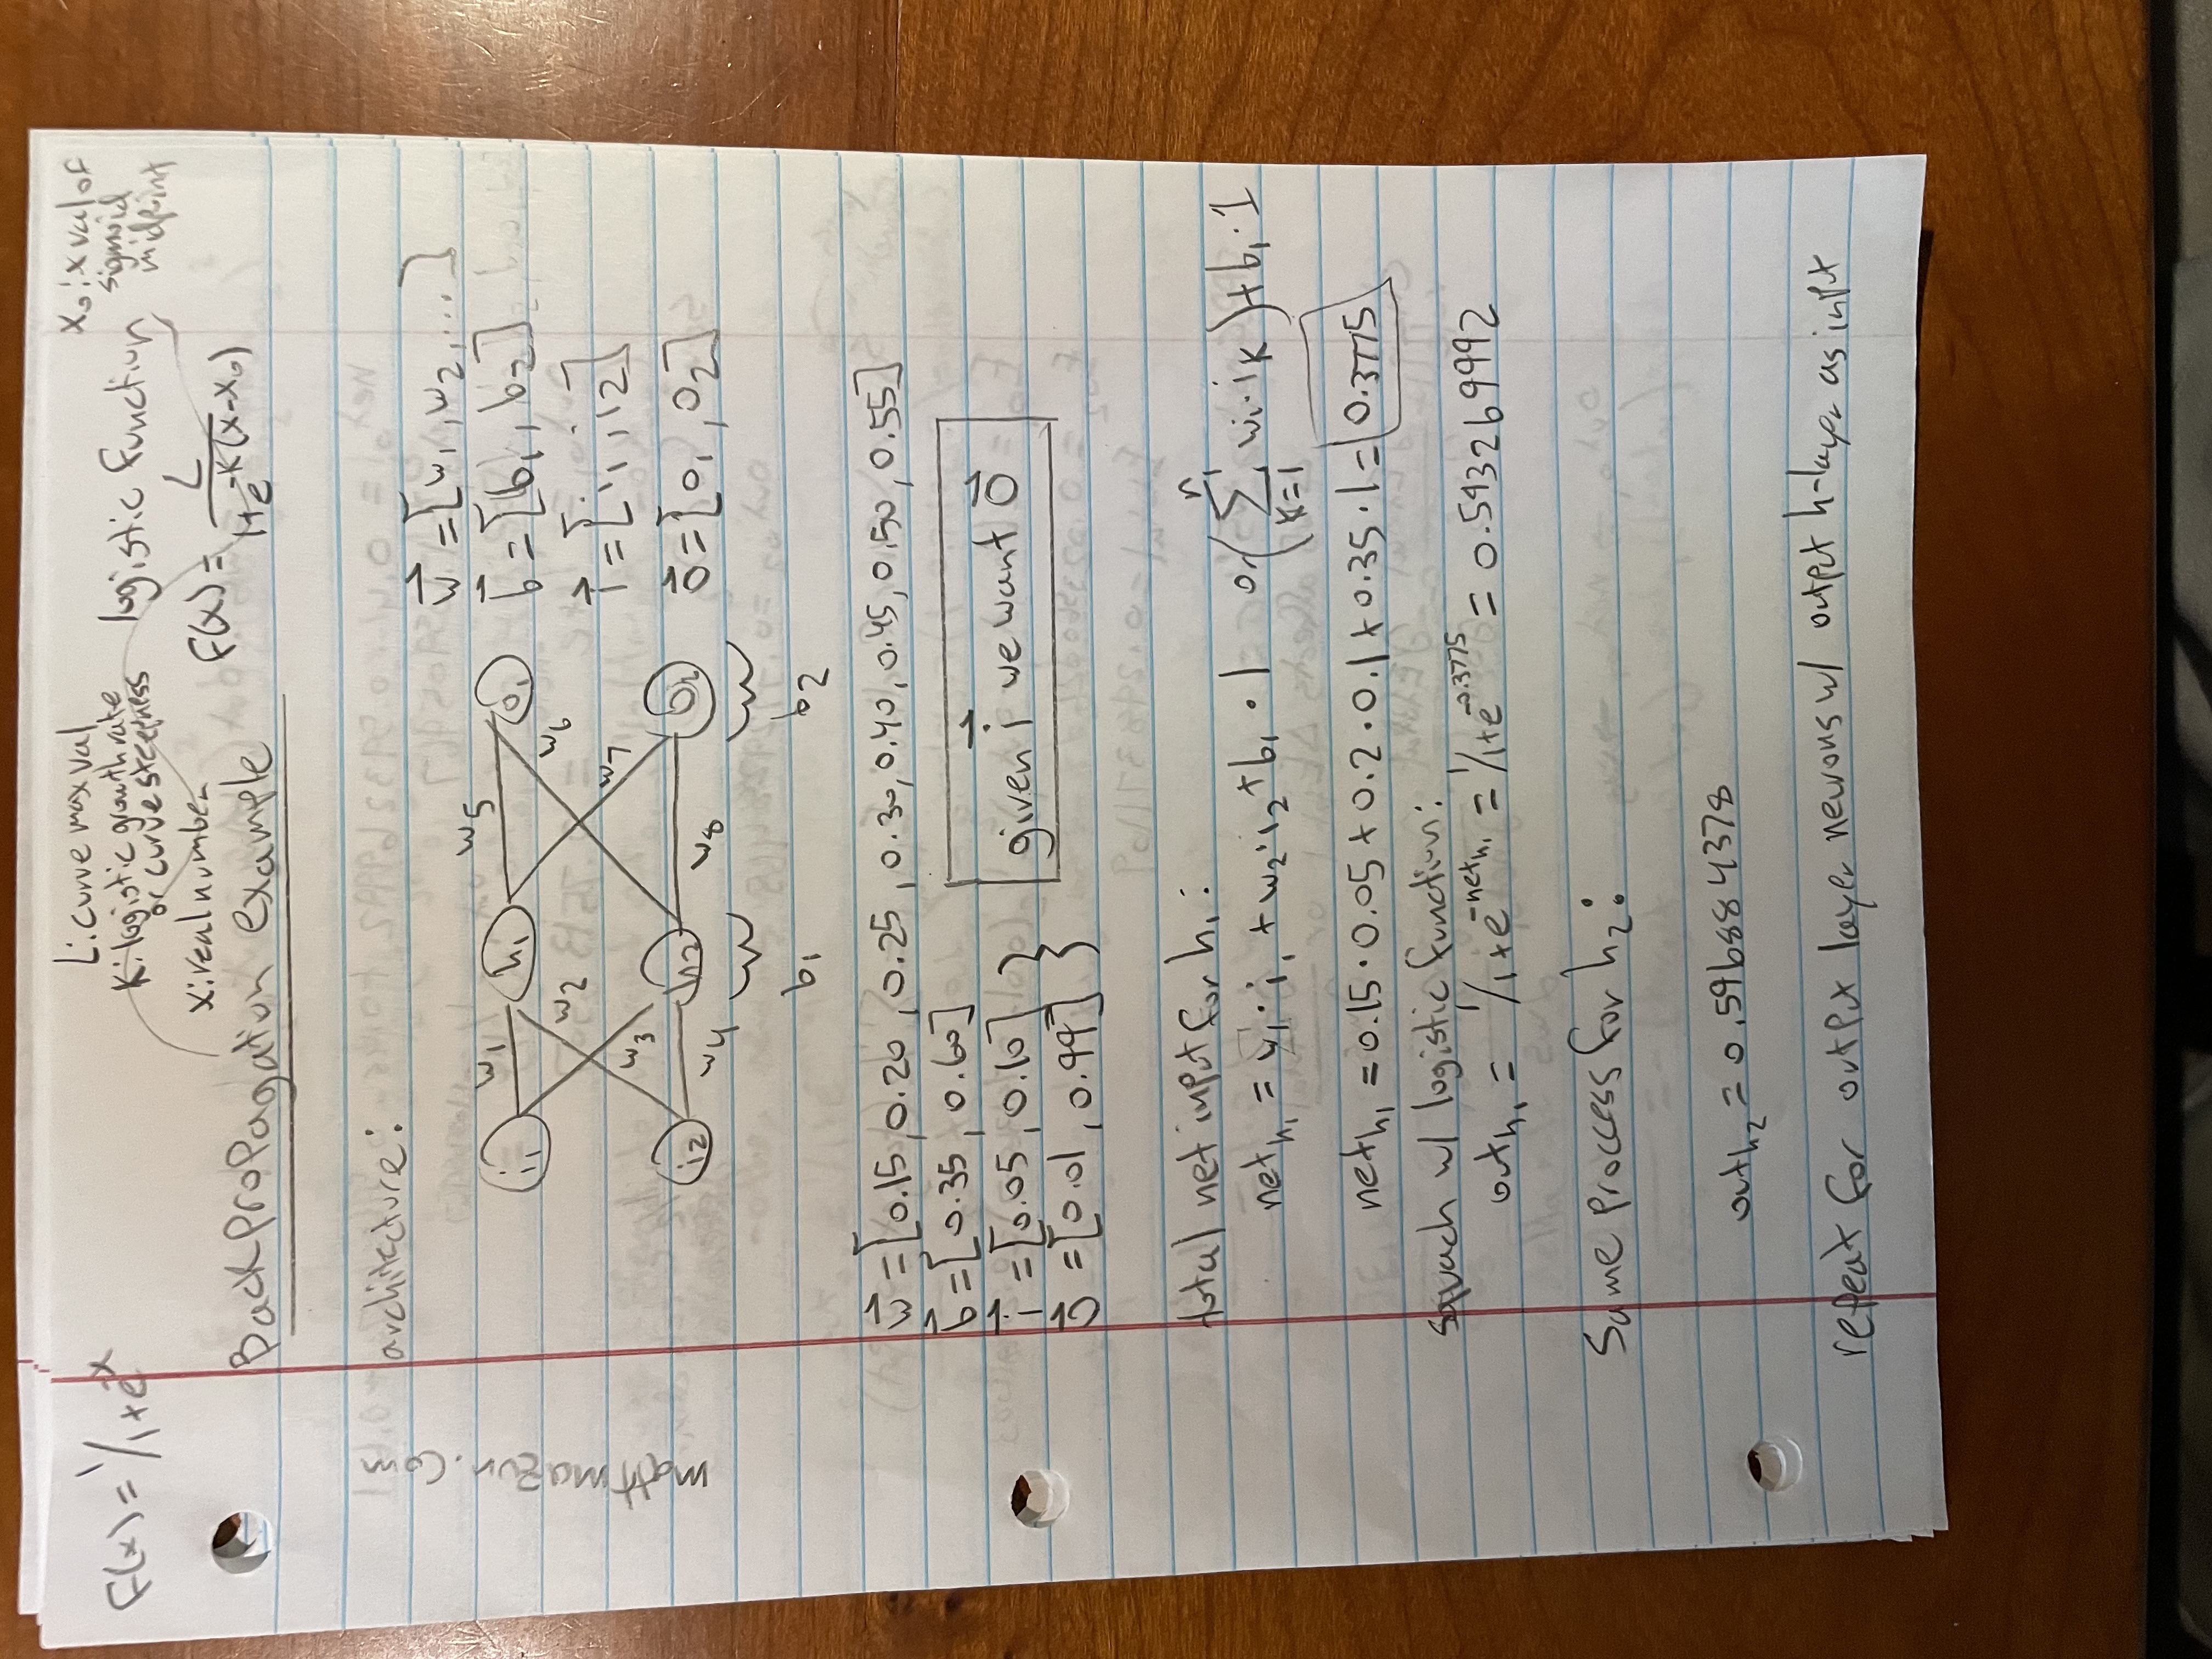 F(x) = 1/1+e^-x
L: curve max val
K: logistic growth rate
or curve steepness
x: real number
logistic function
x₀: x val of
sigmoid
midpoint
F(x) = L / 1+e^-K(x-x₀)
Backpropagation example
mattmazur.com
architecture:
i₁ w₁ h₁ w₅ o₁
w₂ w₆
w₃ w₇
i₂ w₄ h₂ w₈ o₂
b₁ b₂
w⃗ = [w₁, w₂, ...]
b⃗ = [b₁, b₂]
i⃗ = [i₁, i₂]
o⃗ = [o₁, o₂]
w⃗ = [0.15, 0.20, 0.25, 0.30, 0.40, 0.45, 0.50, 0.55]
b⃗ = [0.35, 0.60]
i⃗ = [0.05, 0.10]
o⃗ = [0.01, 0.99]
given i⃗ we want o⃗
total net input for h₁:
net_h₁ = w₁·i₁ + w₂·i₂ + b₁·1 or (∑ⁿ_K=1 wᵢ·i_K) + b₁·1
net_h₁ = 0.15·0.05 + 0.2·0.1 + 0.35·1 = 0.3775
squach w/ logistic function:
out_h₁ = 1/1+e^-net_h₁ = 1/1+e^-0.3775 = 0.593269992
Same proccess for h₂:
out_h₂ = 0.596884378
repeat for output layer neurons w/ output h-layer as input